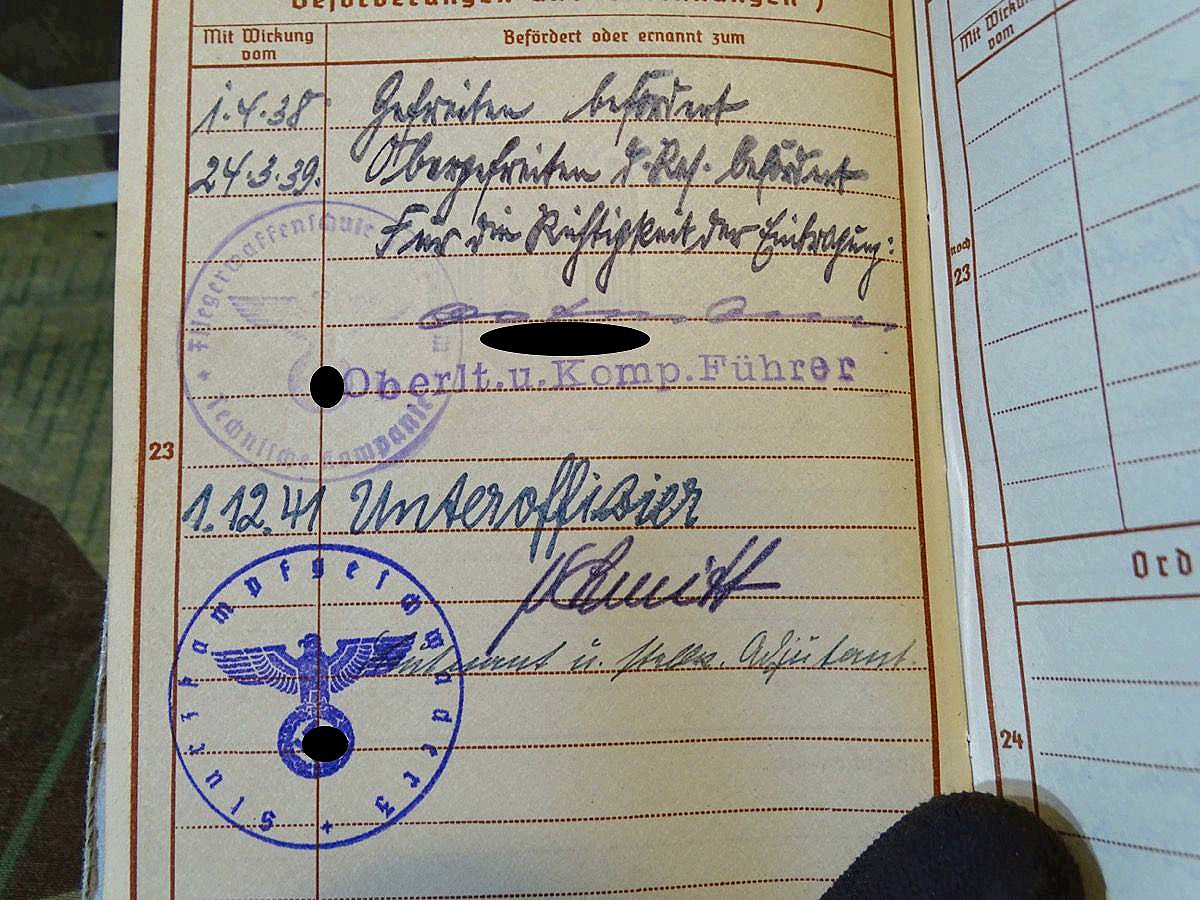 Beförderungen und Ernennungen)
Mit Wirkung
vom
Befördert oder ernannt zum
1.4.38 Gefreiten befördert
24.3.39. Obergefreiten d. Res. befördert
Für die Richtigkeit der Eintragung:
Fliegerwaffenschule
Technische Kompanie
Oberlt.u.Komp.Führer
23
1.12.41 Unteroffizier
Schmitt
Leutnant u. stellv. Adjutant.
Sturzkampfgeschwader 3
Mit Wirkung
vom
noch
23
Ord
24